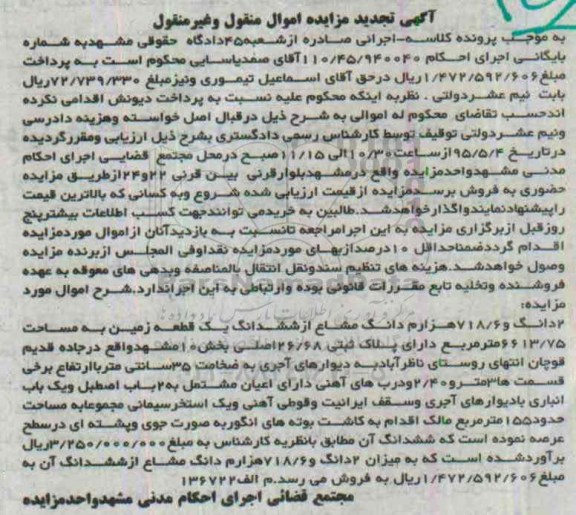 آگهی تجدید مزایده اموال منقول وغیرمنقول
به موجب پرونده کلاسه-اجرائی صادره ازشعبه۴۵دادگاه حقوقی مشهدبه شماره
بایگانی اجرای احکام ۱۱۰/۴۵/۹۴۰۰۴۰آقای صفدیاسایی محکوم است به پرداخت
مبلغ۱/۴۷۲/۵۹۲/۶۰۶ریال درحق آقای اسماعیل تیموری ونیزمبلغ ۷۲/۷۳۹/۳۳۰ریال
بابت نیم عشردولتی . نظربه اینکه محکوم علیه نسبت به پرداخت دیونش اقدامی نکرده
اندحسب تقاضای محکوم له اموالی به شرح ذیل درقبال اصل خواسته وهزینه دادرسی
ونیم عشردولتی توقیف توسط کارشناس رسمی دادگستری بشرح ذیل ارزیابی ومقررگردیده
درتاریخ ۹۵/۵/۴ازساعت۱۰/۳۰الی۱۱/۱۵صبح درمحل مجتمع قضایی اجرای احکام
مدنی مشهدواحدمزایده واقع درمشهدبلوارقرنی بین قرنی ۲۲و۲۴ازطریق مزایده
حضوری به فروش برسدمزایده ازقیمت ارزیابی شده شروع وبه کسانی که بالاترین قیمت
راپیشنهادنمایندواگذارخواهدشد.طالبین به خریدمی توانندجهت کسب اطلاعات بیشترپنج
روزقبل ازبرگزاری مزایده به این اجرامراجعه تانسبت به بازدیدآنان ازاموال موردمزایده
اقدام گرددضمناحداقل ۱۰درصدازبهای موردمزایده نقداوفی المجلس ازبرنده مزایده
وصول خواهدشد.هزینه های تنظیم سندونقل انتقال بالمناصفه وبدهی های معوقه به عهده
فروشنده وتخلیه تابع مقررات قانونی بوده وارتباطی به این اجراندارد.شرح اموال مورد
مزایده:
۲دانگ و۷۱۸/۶هزارم دانگ مشاع ازششدانگ یک قطعه زمین به مساحت
۶۶۱۳/۷۵مترمربع دارای پلاک ثبتی ۲۶/۶۸اصلی بخش۱۰مشهدواقع درجاده قدیم
قوچان انتهای روستای ناظرآبادبه دیوارهای آجری به ضخامت ۳۵سانتی متربااارتفاع برخی
قسمت ها۳مترو۲/۴۰ودرب های آهنی دارای اعیان مشتمل به۲باب اصطبل ویک باب
انباری بادیوارهای آجری وسقف ایرانیت وقوطی آهنی ویک استخرسیمانی مجموعابه مساحت
حدود۱۵۵مترمربع مالک اقدام به کاشت بوته های انگوربه صورت جوی وپشته ای درسطح
عرصه نموده است که ششدانگ آن مطابق بانظریه کارشناس به مبلغ۳/۲۵۰/۰۰۰/۰۰۰ریال
برآوردشده است که به میزان ۲دانگ و۷۱۸/۶هزارم دانگ مشاع ازششدانگ آن به
مبلغ۱/۴۷۲/۵۹۲/۶۰۶ریال به فروش می رسد.م الف۱۳۶۷۲۲
مجتمع قضائی اجرای احکام مدنی مشهدواحدمزایده